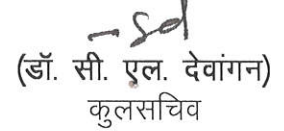 -sd
(डॉ. सी. एल. देवांगन)
कुलसचिव